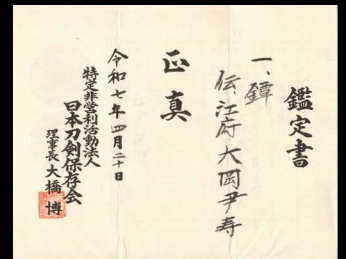 鑑定書
一、鐔
伝江府大岡尹寿
正真
令和七年四月二十日
特定非営利活動法人
日本刀剣保存会
理事長 大橋 博